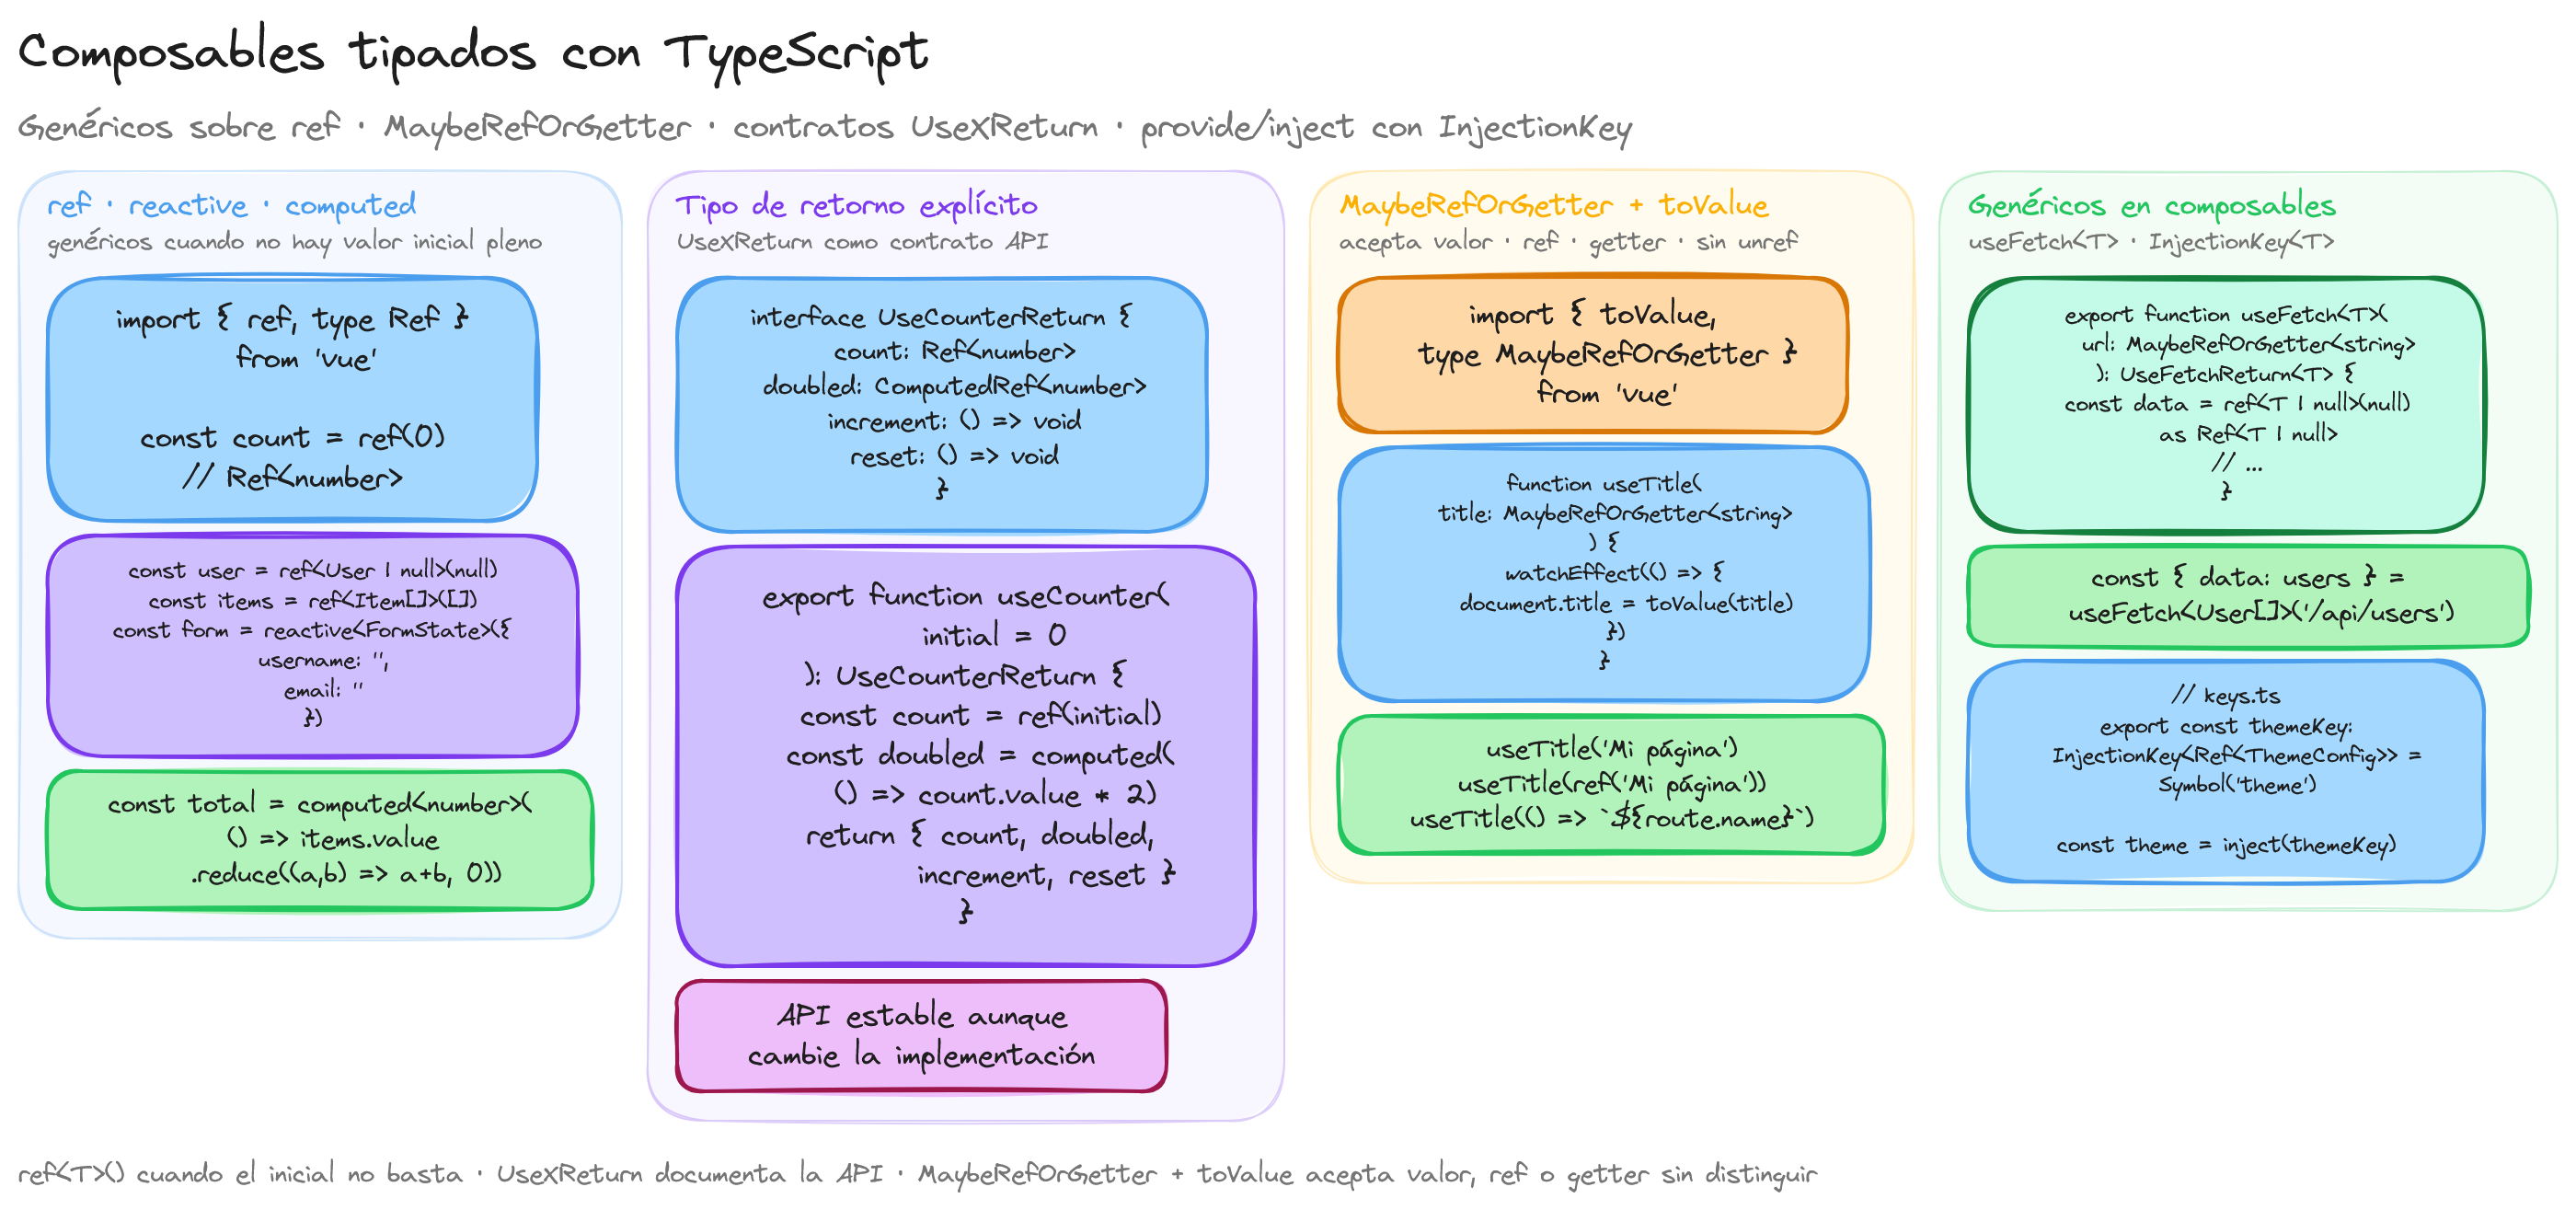 Composables tipados con TypeScript
Genéricos sobre ref · MaybeRefOrGetter · contratos UseXReturn · provide/inject con InjectionKey
ref · reactive · computed
genéricos cuando no hay valor inicial pleno
import { ref, type Ref }
from 'vue'
const count = ref(0)
// Ref<number>
const user = ref<User | null>(null)
const items = ref<Item[]>([])
const form = reactive<FormState>({
username: '',
email: ''
})
const total = computed<number>(
() => items.value
.reduce((a,b) => a+b, 0))
Tipo de retorno explícito
UseXReturn como contrato API
interface UseCounterReturn {
count: Ref<number>
doubled: ComputedRef<number>
increment: () => void
reset: () => void
}
export function useCounter(
initial = 0
): UseCounterReturn {
const count = ref(initial)
const doubled = computed(
() => count.value * 2)
return { count, doubled,
increment, reset }
}
API estable aunque
cambie la implementación
MaybeRefOrGetter + toValue
acepta valor · ref · getter · sin unref
import { toValue,
type MaybeRefOrGetter }
from 'vue'
function useTitle(
title: MaybeRefOrGetter<string>
) {
watchEffect(() => {
document.title = toValue(title)
})
}
useTitle('Mi página')
useTitle(ref('Mi página'))
useTitle(() => `${route.name}`)
Genéricos en composables
useFetch<T> · InjectionKey<T>
export function useFetch<T>(
url: MaybeRefOrGetter<string>
): UseFetchReturn<T> {
const data = ref<T | null>(null)
as Ref<T | null>
// ...
}
const { data: users } =
useFetch<User[]>('/api/users')
// keys.ts
export const themeKey:
InjectionKey<Ref<ThemeConfig>> =
Symbol('theme')
const theme = inject(themeKey)
ref<T>() cuando el inicial no basta · UseXReturn documenta la API · MaybeRefOrGetter + toValue acepta valor, ref o getter sin distinguir